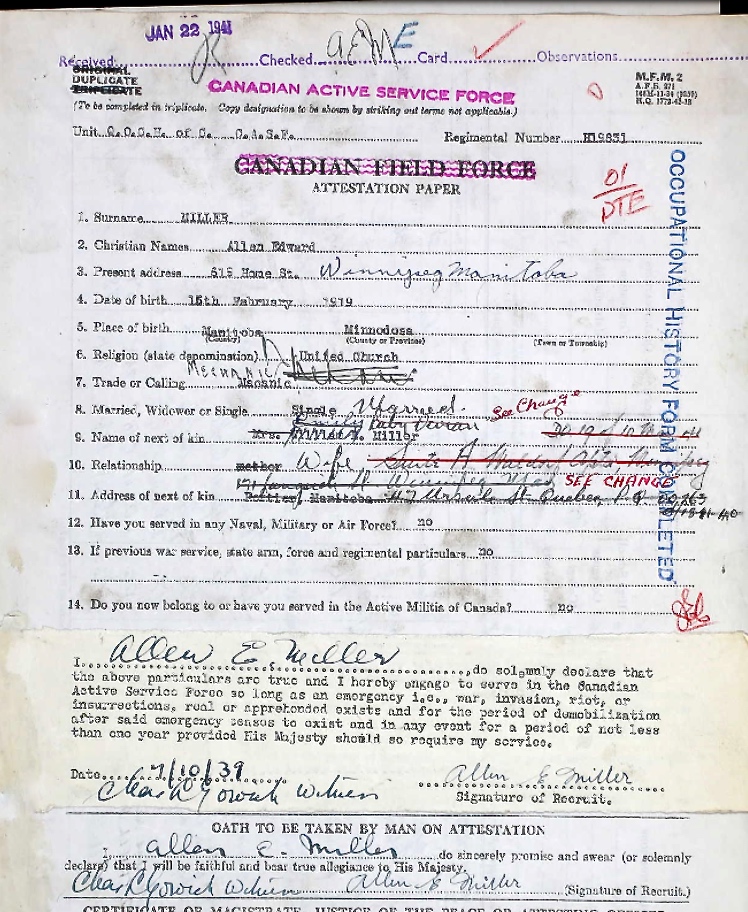 JAN 22 1941
Received Checked Card Observations
ORIGINAL
DUPLICATE
TRIPLICATE
CANADIAN ACTIVE SERVICE FORCE
M.F.M. 2
(To be completed in triplicate. Copy designation to be shown by striking out terms not applicable.)
Unit Q.O.C.H. of C. C.A.S.F. Regimental Number H19831
CANADIAN FIELD FORCE
ATTESTATION PAPER
01
DTE
OCCUPATIONAL HISTORY FORM COMPLETED
1. Surname MILLER
2. Christian Names Allen Edward
3. Present address 618 Home St. Winnipeg Manitoba
4. Date of birth 15th February 1919
5. Place of birth Manitoba Minnedosa
(Country) (County or Province) (Town or Township)
6. Religion (state denomination) United Church
MECHANIC
7. Trade or Calling Mecanic
8. Married, Widower or Single Single Married. See Change
Emily
9. Name of next of kin Mrs. Miller
10. Relationship mother Wife Suite A Apts Winnipeg
Winnipeg Man SEE CHANGE
11. Address of next of kin Manitoba 47 Ursule St. Quebec, P.Q.
12. Have you served in any Naval, Military or Air Force? no
13. If previous war service, state arm, force and regimental particulars no
14. Do you now belong to or have you served in the Active Militia of Canada? no
I. Allen E. Miller, do solemnly declare that
the above particulars are true and I hereby engage to serve in the Canadian
Active Service Force so long as an emergency i.e., war, invasion, riot, or
insurrections, real or apprehended exists and for the period of demobilization
after said emergency ceases to exist and in any event for a period of not less
than one year provided His Majesty should so require my service.
Date 7/10/39 Allen E Miller
Witness Signature of Recruit.
OATH TO BE TAKEN BY MAN ON ATTESTATION
I, Allen E. Miller do sincerely promise and swear (or solemnly
declare) that I will be faithful and bear true allegiance to His Majesty.
Witness Allen E Miller (Signature of Recruit.)
CERTIFICATE OF MAGISTRATE, JUSTICE OF THE PEACE OR ATTESTING OFFICER